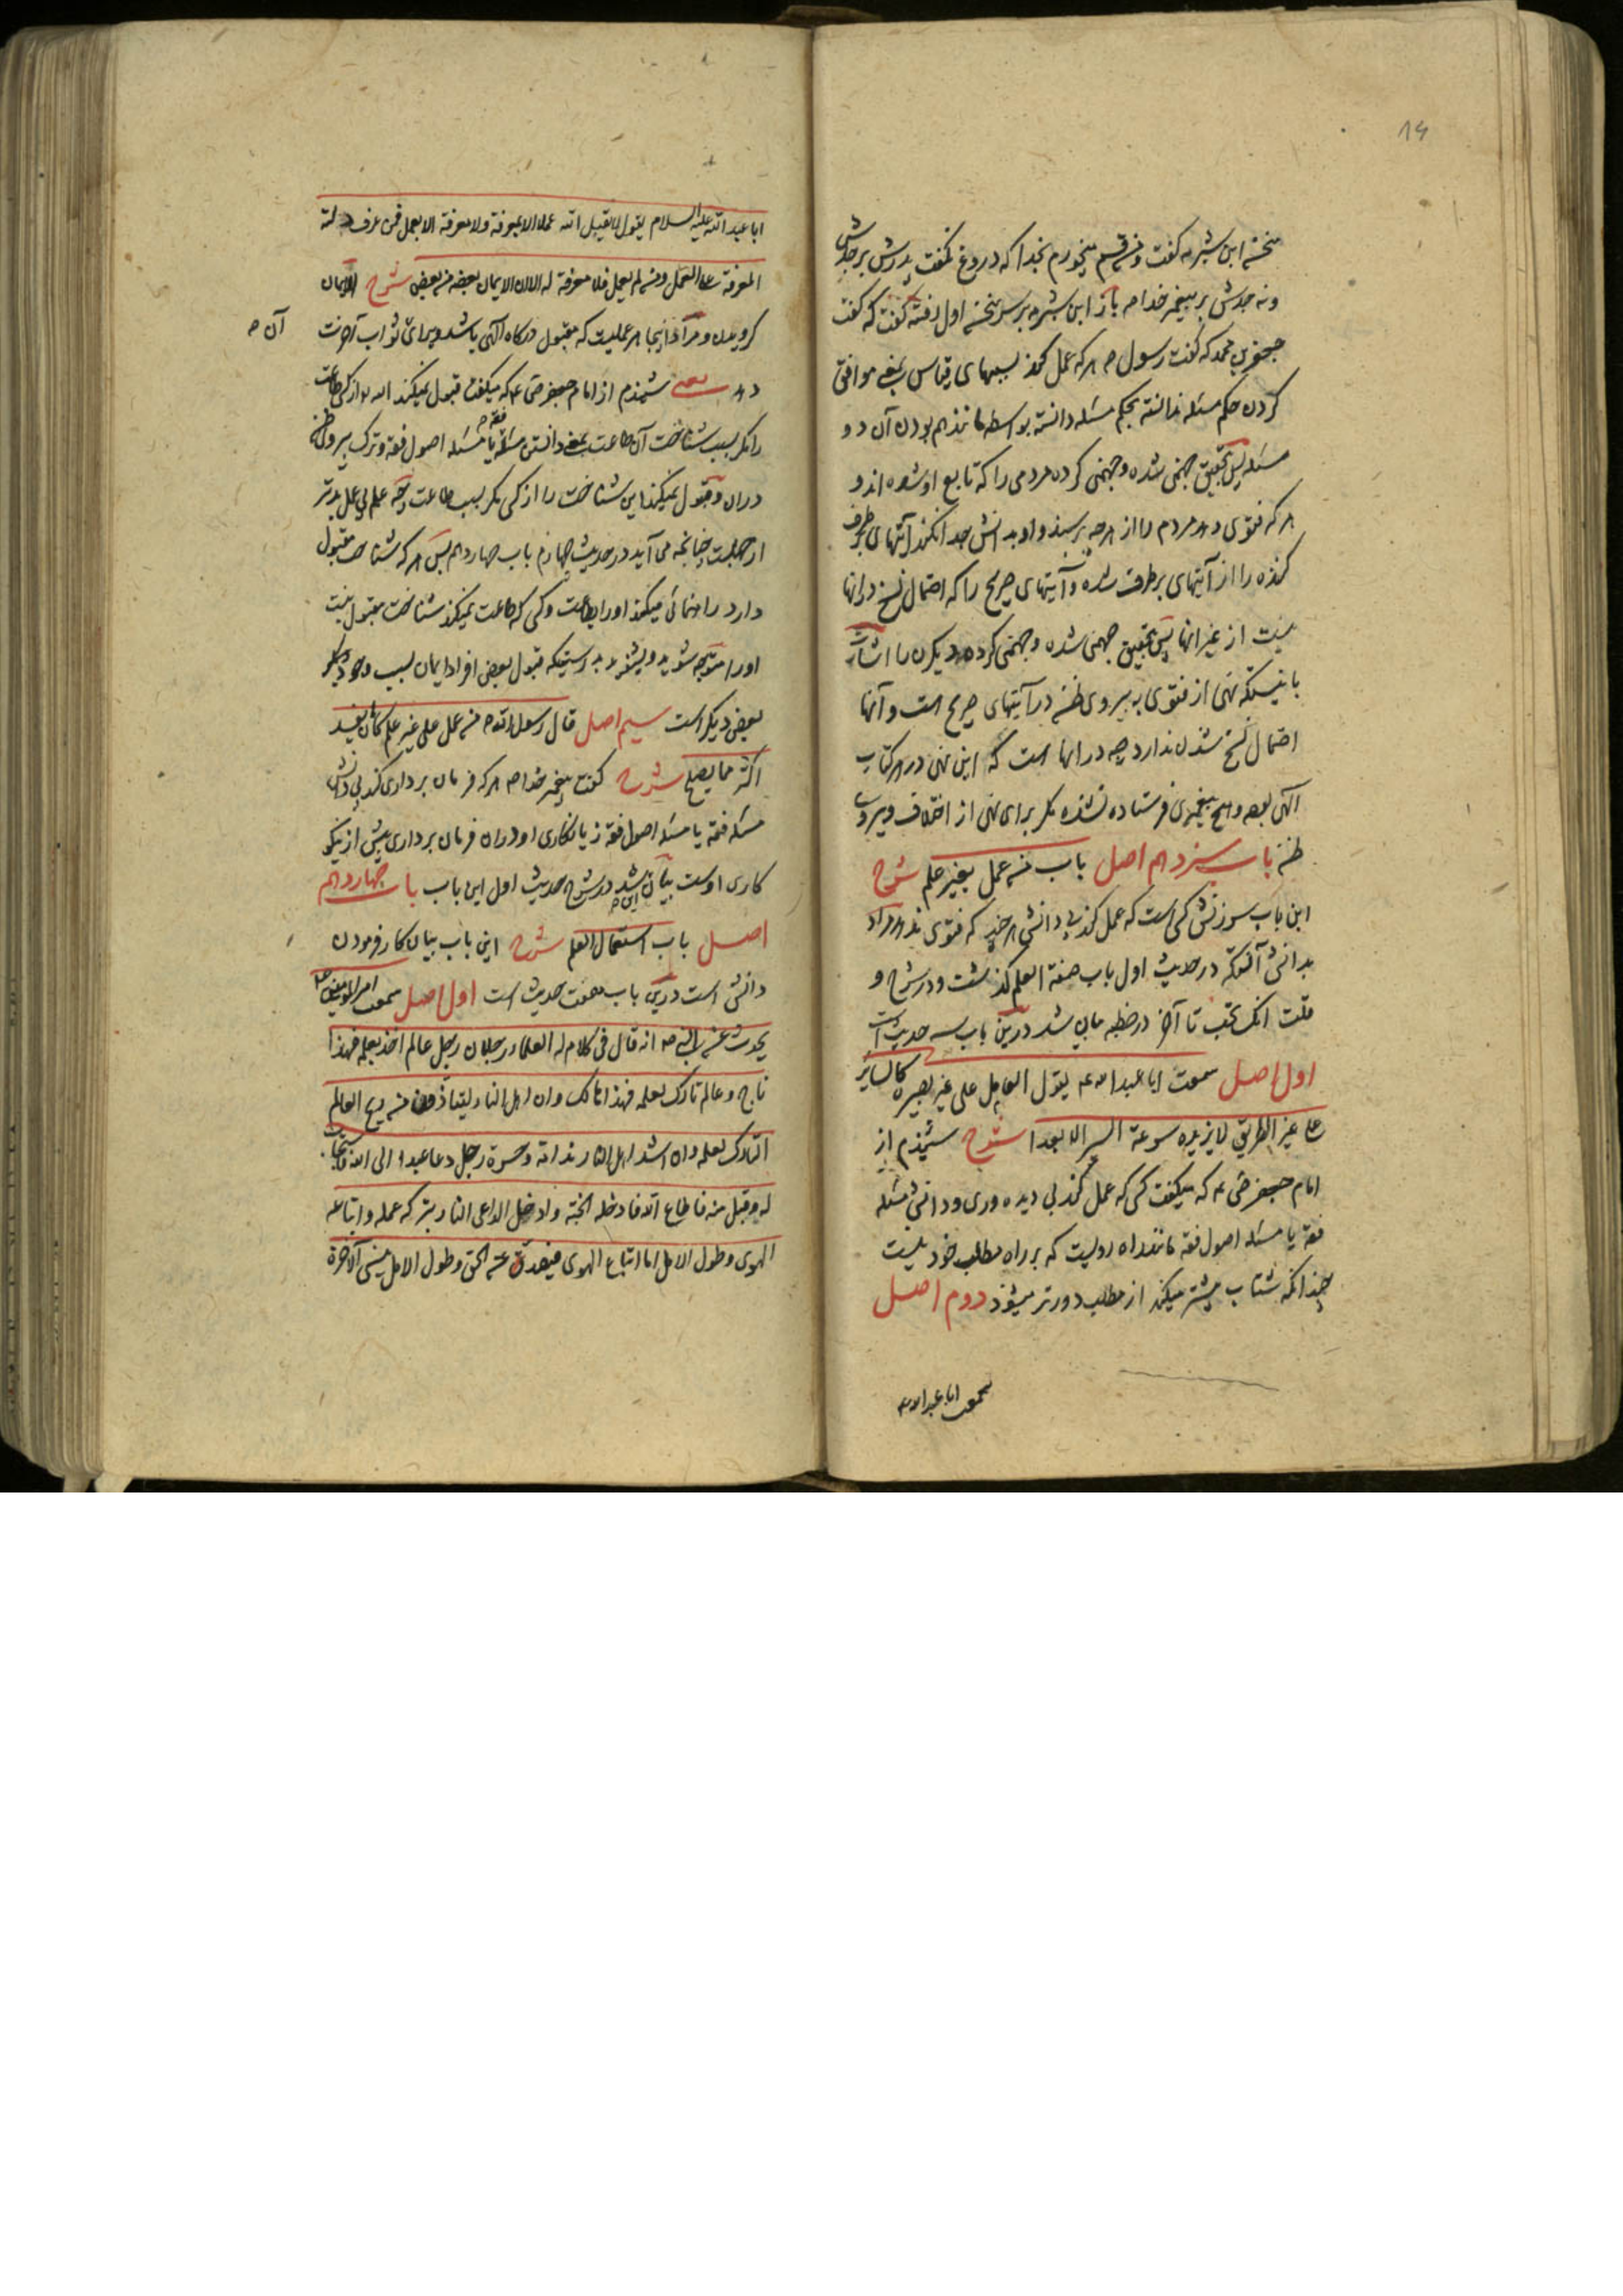 14
سخن ابن شبرمه گفت من قسم میخورم بخدا که دروغ نگفت پدرش بر جدش
و نه جدش بر پیغمبر خدا ص باز ابن شبرمه بر سر سخن اول رفته گفت که گفت
جعفر بن محمد که گفت رسول ص هر که عمل کند بسببهای قیاس یعنی موافق
کردن حکم مسئله ندانسته بحکم مسئله دانسته بواسطه مانند هم بودن آن دو
مسئله پس بتحقیق جهنمی شده و جهنمی کرده مردمی را که تابع او شده اند و
هر که فتوی دهد مردم را از هرچه پرسند و او بدانش جدا نکند آیتهای برطرف
کننده را از آیتهای برطرف شده و آیتهای صریح را که احتمال نسخ در آنها
نیست از غیر آنها پس بتحقیق جهنمی شده و جهنمی کرده دیگران را اشارتست
باینکه نهی از فتوی به پیروی ظن در آیتهای صریح است و آنها
احتمال نسخ شدن ندارد چه در آنها است که این نهی در هر کتاب
الهی بوده و هیچ پیغمبری فرستاده نشده مگر برای نهی از اختلاف و پیروی
ظن باب سیزدهم اصل باب من عمل بغیر علم شرح
این باب سرزنش کسی است که عمل کند بی دانش هر چند که فتوی ندهد مراد
بدانش آنست که در حدیث اول باب صفة العلم گذشت و در شرح و
قلت انک تحب تا آخر در خطبه بیان شد درین باب سه حدیث است
اول اصل سمعت ابا عبد الله ع یقول العامل علی غیر بصیرة کالسایر
علی غیر الطریق لا یزیده سرعة السیر الا بعدا شرح شنیدم از
امام جعفر ص ع که میگفت کسی که عمل کند بی دیده وری و دانش مسئله
فقه یا مسئله اصول فقه مانند راه رویست که بر راه مطلب خود نیست
چندانکه شتاب بیشتر میکند از مطلب دورتر میشود دوم اصل
سمعت ابا عبد الله
ابا عبد الله علیه السلام یقول لا یقبل الله عملا الا بمعرفة ولا معرفة الا بعمل فمن عرف دلته
المعرفة علی العمل ومن لم یعمل فلا معرفة له الا ان الایمان بعضه من بعض شرح الایمان
گرویدن و مراد اینجا هر عملیست که مقبول درگاه الهی باشد و برای ثواب آخرت
آن ص
دهد یعنی شنیدم از امام جعفر ص ع که میگفت قبول نمیکند الله تع از کسی طاعت
را مگر بسبب شناخت آن طاعت یعنی دانستن مسئله فقه یا مسئله اصول فقه و ترک پیروی ظن
در آن و قبول نمیکند این شناخت را از کسی مگر بسبب طاعت چه علم بی عمل بدتر
از جهلست چنانچه می آید در حدیث چهارم باب چهاردهم پس هر که شناخت مقبول
دارد راهنمائی میکند او را بطاعت و کسی که طاعت نمیکند شناخت مقبول نیست
او را متوجه شوید و بشنوید بدرستیکه قبول بعض افراد ایمان بسبب وجود
بعض دیگر است سیم اصل قال رسول الله ص من عمل علی غیر علم کان ما یفسد
اکثر مما یصلح شرح گفت پیغمبر خدا ص هر که فرمان برداری کند بی دانش
مسئله فقه یا مسئله اصول فقه زیانکاری او در آن فرمان برداری بیش از نیکو
کاری اوست بیان این شد در شرح حدیث اول این باب باب چهاردهم
اصل باب استعمال العلم شرح این باب بیان کار فرمودن
دانش است درین باب هفت حدیث است اول اصل سمعت امیر المؤمنین ع
یحدث عن النبی ص انه قال فی کلام له العلماء رجلان رجل عالم اخذ بعلمه فهذا
ناج و عالم تارک لعلمه فهذا هالک و ان اهل النار لیتأذون من ریح العالم
التارک لعلمه و ان اشد اهل النار ندامة و حسرة رجل دعا عبدا الی الله فاستجاب
له و قبل منه فاطاع الله فادخله الجنة و ادخل الداعی النار بترکه عمله و اتباعه
الهوی و طول الامل اما اتباع الهوی فیصد عن الحق و طول الامل ینسی الآخرة